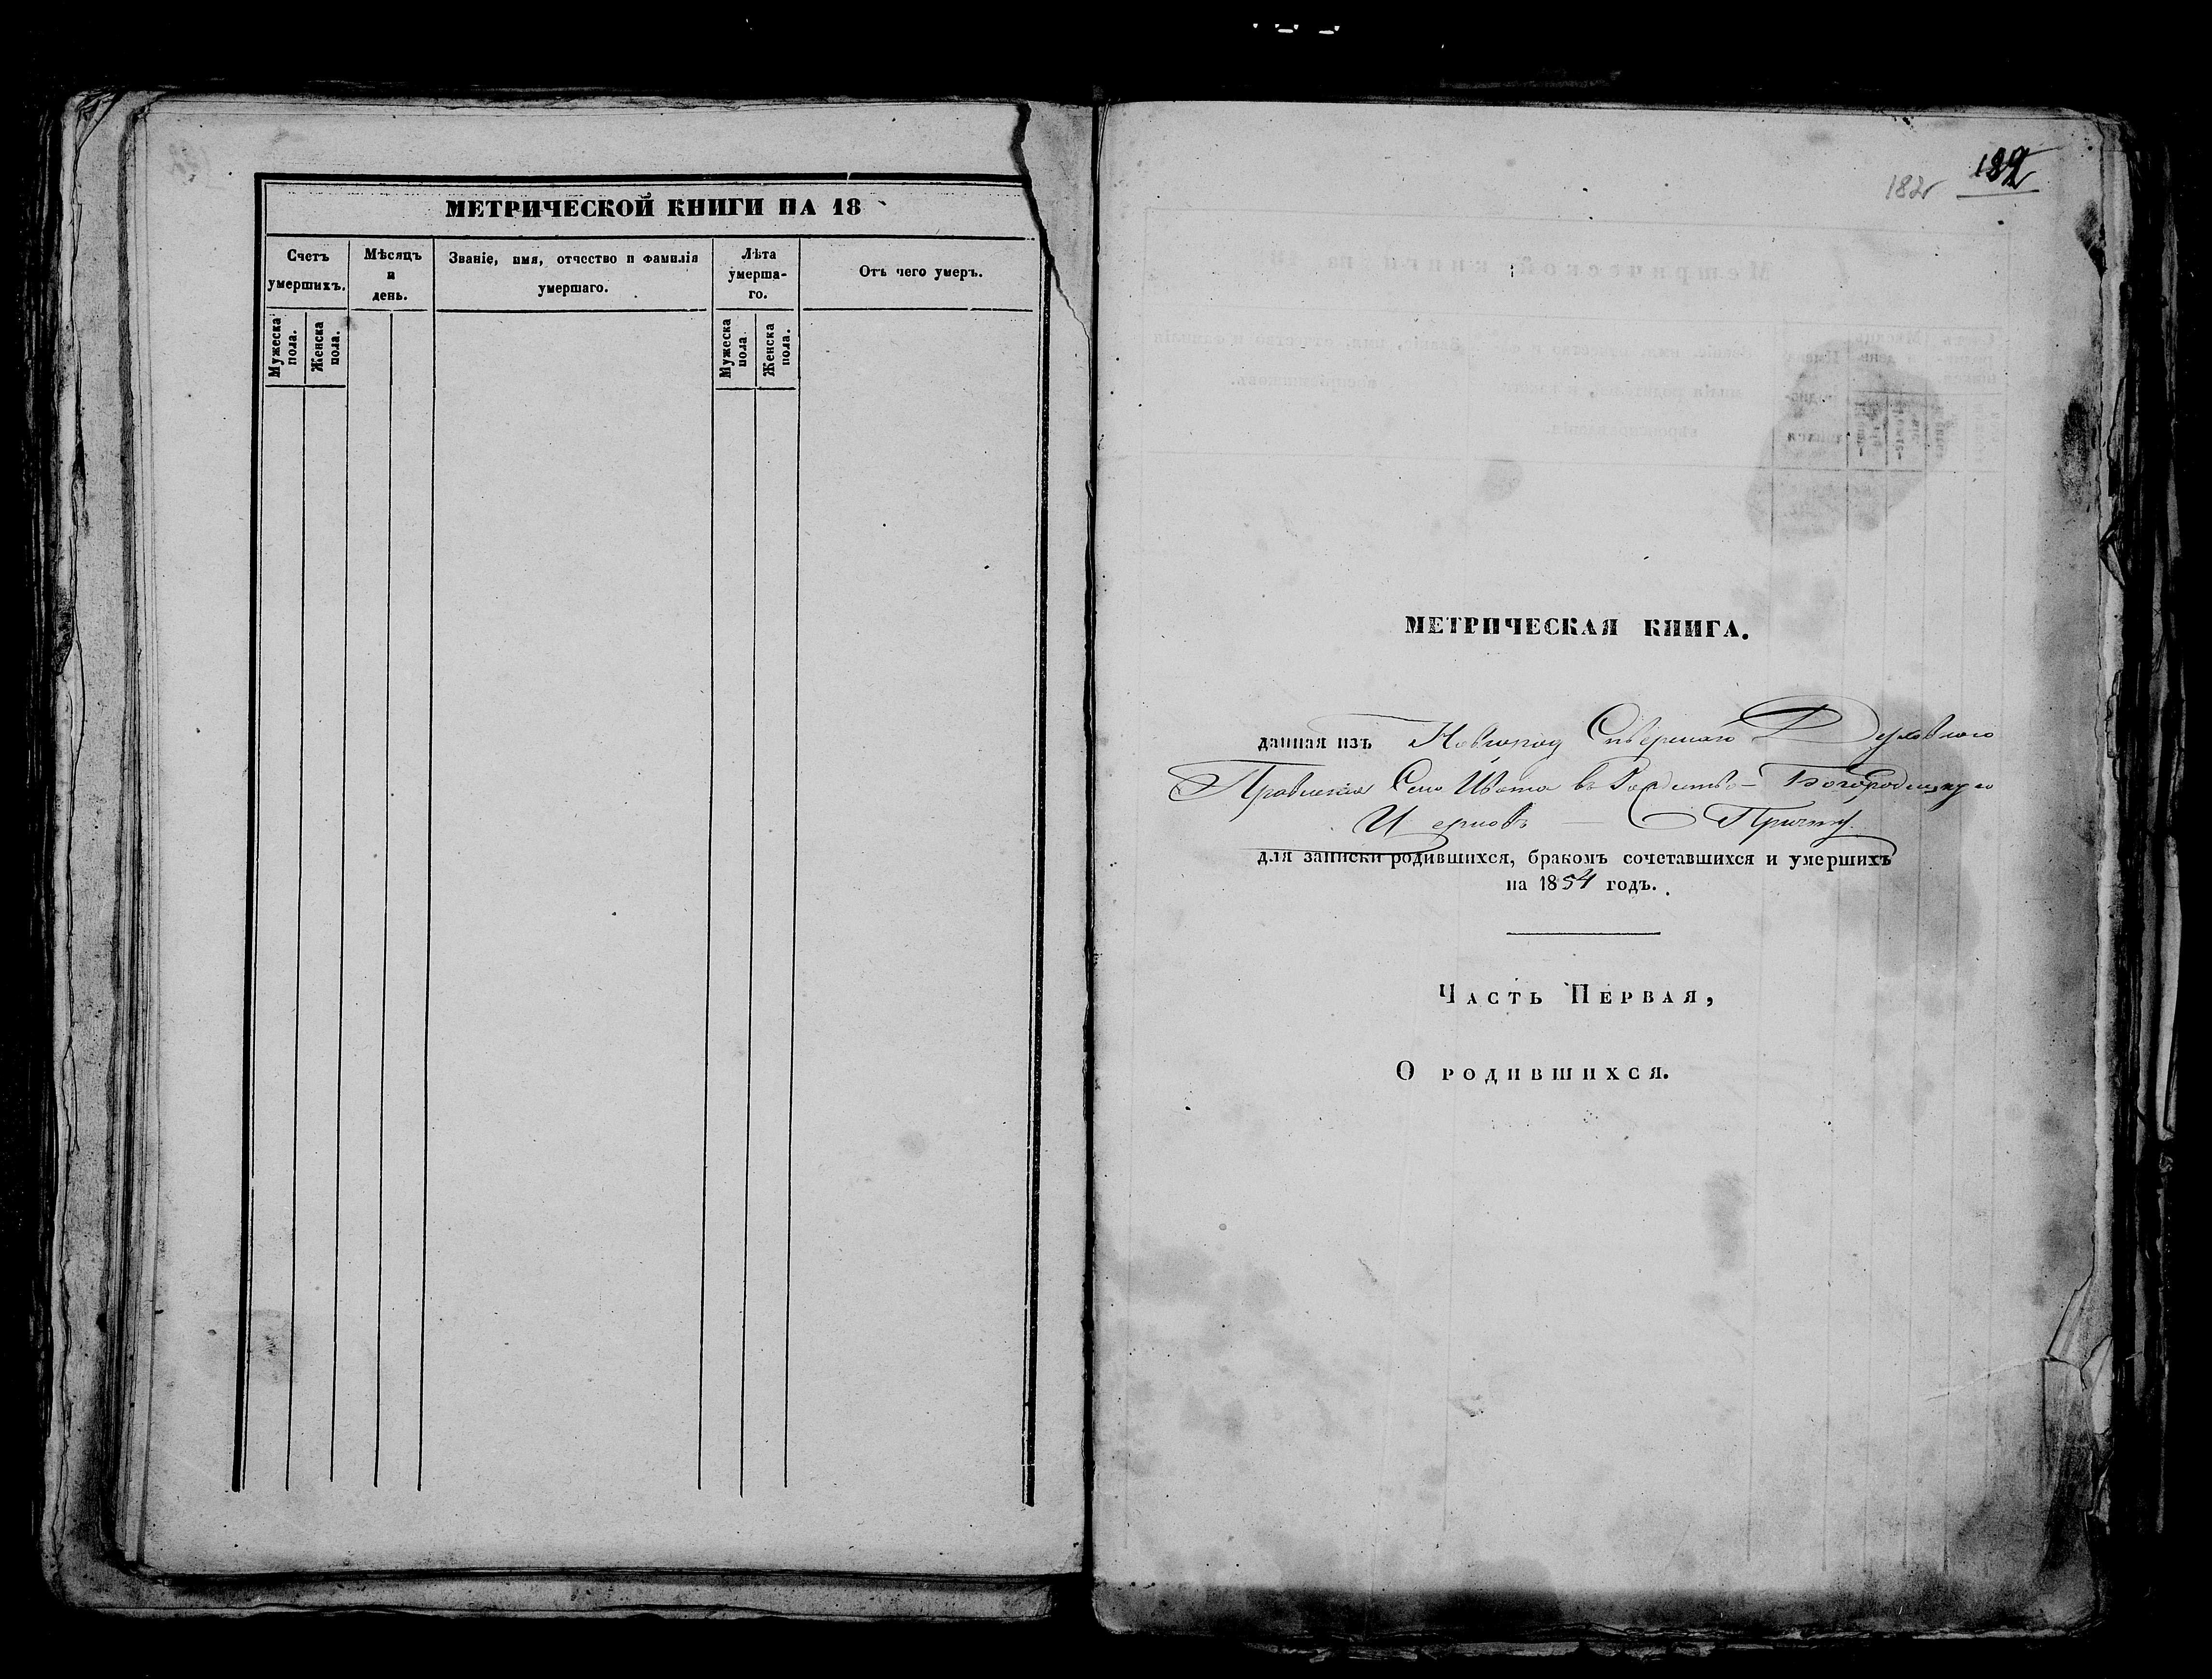 МЕТРИЧЕСКОЙ КНИГИ НА 18
Счетъ
умершихъ.
Мужеска
пола.
Женска
пола.
Мѣсяцъ
и
день.
Званіе, имя, отчество и фамилія
умершаго.
Лѣта
умерша-
го.
Мужеска
пола
Женска
пола.
Отъ чего умеръ.
182
МЕТРИЧЕСКАЯ КНИГА.
данная изъ Новгород Сѣверскаго Духовнаго
Правленія Села Ивота въ Рождество-Богородицкую
Церковь — Причту.
для записки родившихся, бракомъ сочетавшихся и умершихъ
на 1854 годъ.
Часть Первая,
О родившихся.